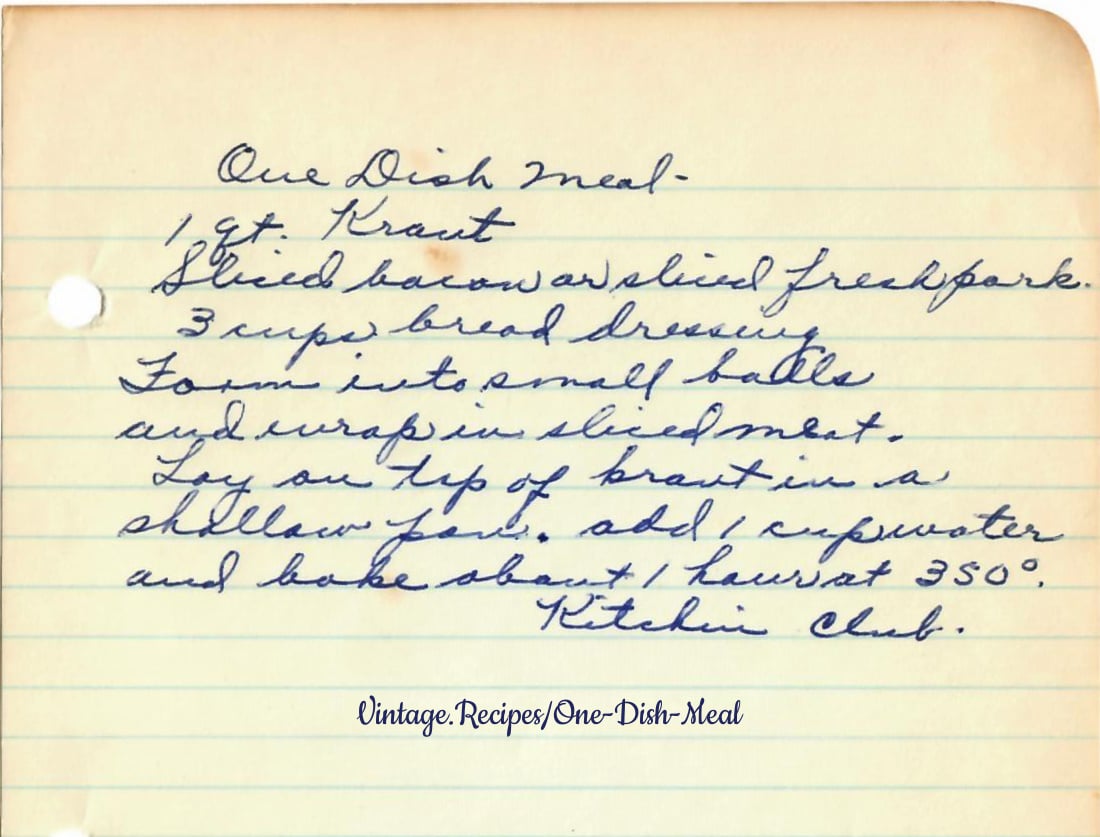 One Dish Meal-
1 qt. Kraut
Sliced bacon or sliced fresh pork.
3 cups bread dressing
Form into small balls
and wrap in sliced meat.
Lay on top of kraut in a
shallow pan. add 1 cup water
and bake about 1 hour at 350°.
Kitchin Club.
Vintage.Recipes/One-Dish-Meal